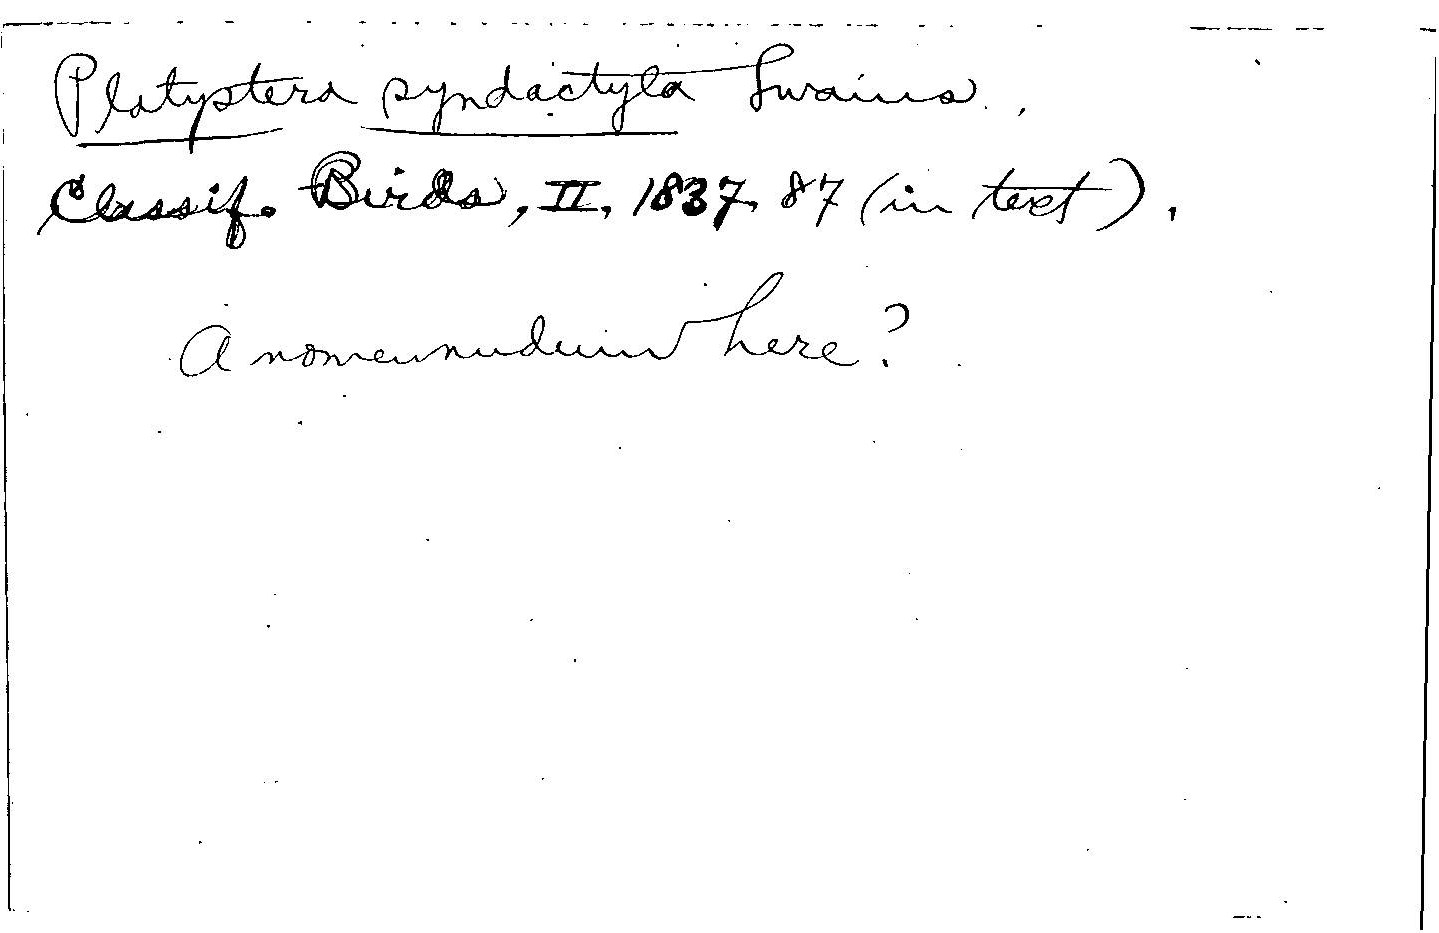 Platyptera syndactyla Swains.
Classif. Birds, II, 1837, 87 (in text).
A nomen nudum here?